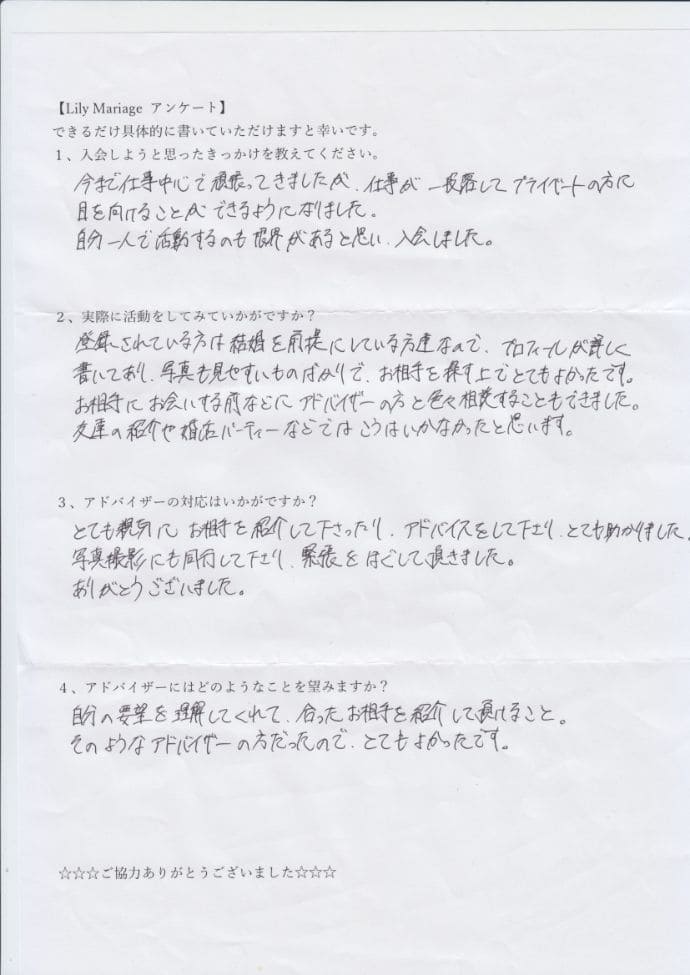 【Lily Mariage アンケート】
できるだけ具体的に書いていただけますと幸いです。
1、入会しようと思ったきっかけを教えてください。
今まで仕事中心で頑張ってきましたが、仕事が一段落してプライベートの方に
目を向けることができるようになりました。
自分一人で活動するのも限界があると思い、入会しました。
2、実際に活動をしてみていかがですか？
登録されている方は結婚を前提にしている方達なので、プロフィールが詳しく
書いてあり、写真も見やすいものばかりで、お相手を探す上でとてもよかったです。
お相手にお会いする前などにアドバイザーの方と色々相談することもできました。
友達の紹介や婚活パーティーなどではこうはいかなかったと思います。
3、アドバイザーの対応はいかがですか？
とても親身にお相手を紹介して下さったり、アドバイスをして下さり、とても助かりました。
写真撮影にも同行して下さり、緊張をほぐして頂きました。
ありがとうございました。
4、アドバイザーにはどのようなことを望みますか？
自分の要望を理解してくれて、合ったお相手を紹介して頂けること。
そのようなアドバイザーの方だったので、とてもよかったです。
☆☆☆ご協力ありがとうございました☆☆☆